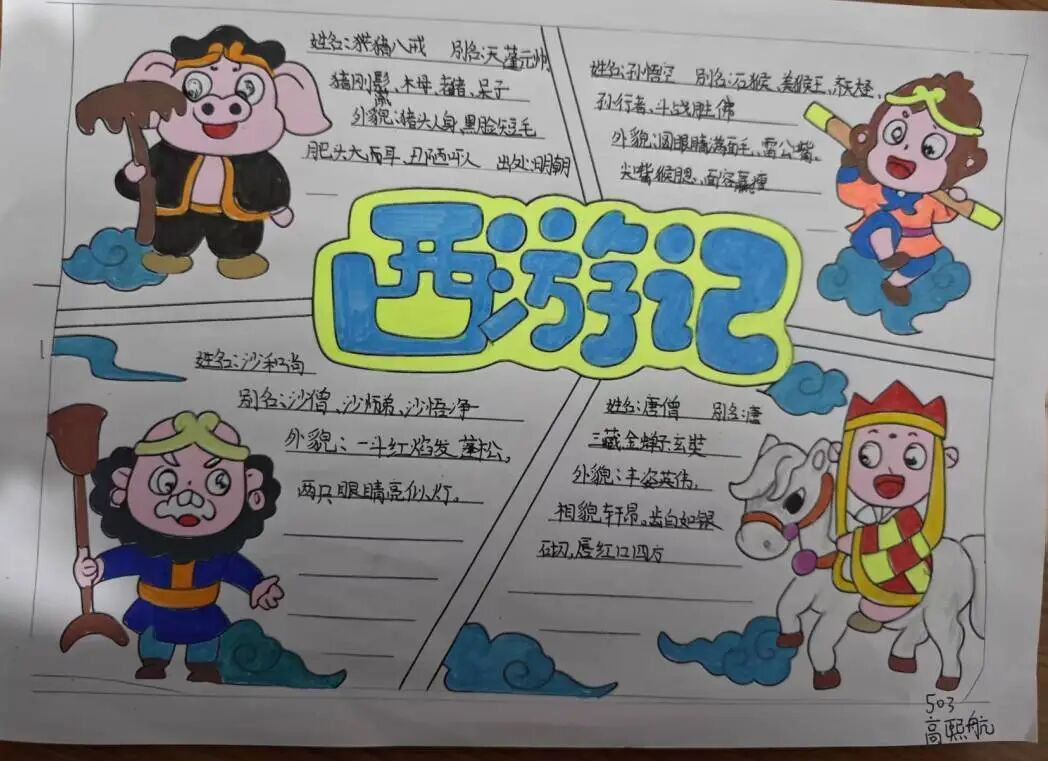 姓名:猪八戒 别名:天蓬元帅
猪刚鬣、木母、呆子
外貌:猪头人身、黑脸短毛
肥头大耳、丑陋吓人 出处:明朝
姓名:孙悟空 别名:石猴、美猴王、
孙行者、斗战胜佛
外貌:圆眼睛满面毛、雷公嘴、
尖嘴猴腮、面容羸瘦
西游记
姓名:沙和尚
别名:沙僧、沙师弟、沙悟净
外貌:一斗红焰发蓬松。
两只眼睛亮似灯。
姓名:唐僧 别名:唐
三藏、金蝉子、玄奘
外貌:丰姿英伟,
相貌轩昂。齿白如银
砌,唇红口四方
503
高熙航